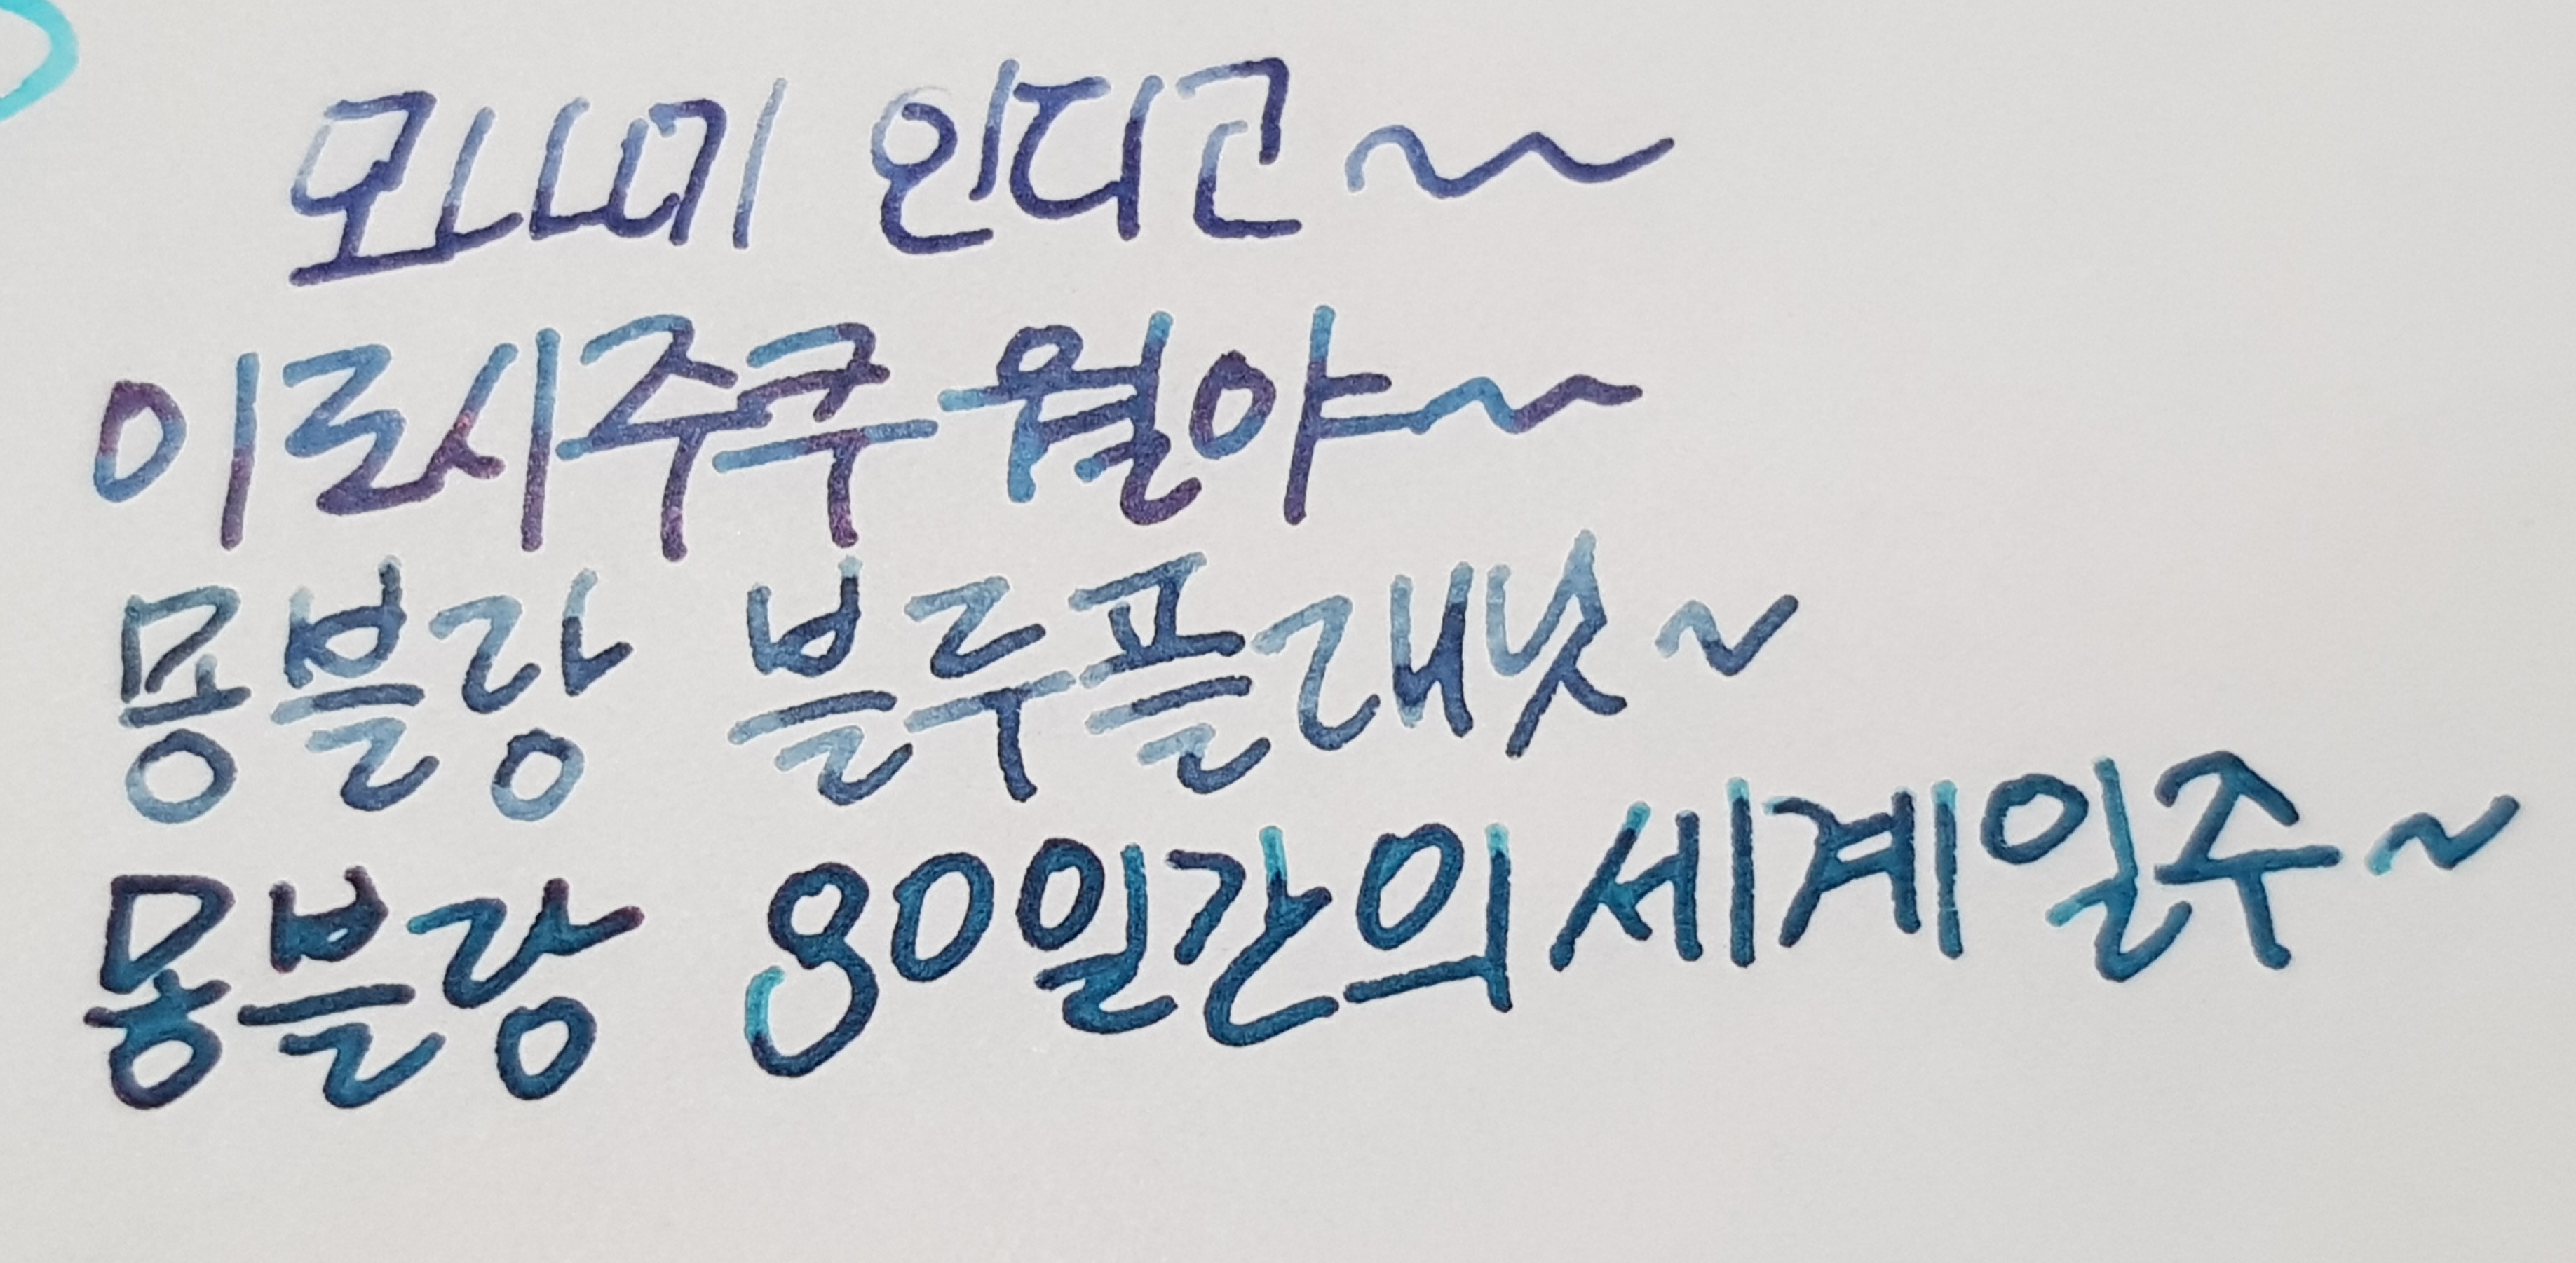 모나미 인디고~~
이로시주쿠 월야~~
몽블랑 블루플래닛~
몽블랑 80일간의 세계일주~